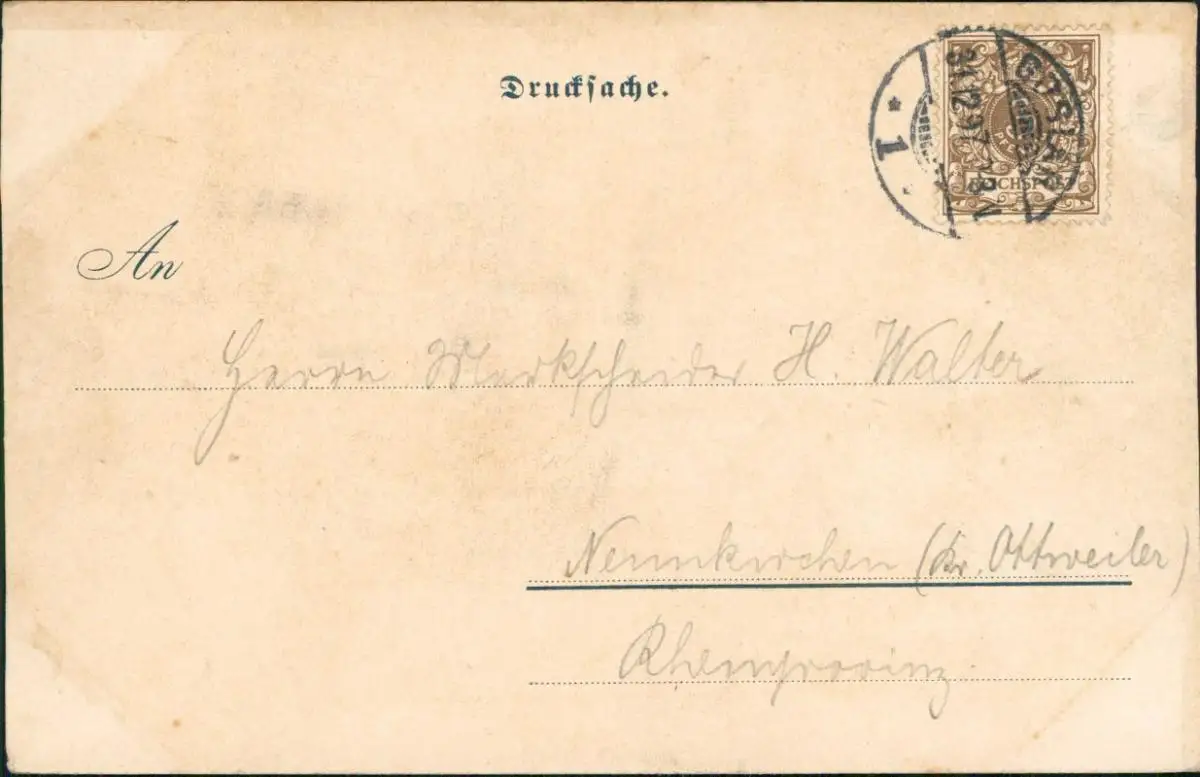 Drucksache.
31.12.97
1
REICHSPOST
An
Herrn Markscheider H. Walter
Neunkirchen (Kr. Ottweiler)
Rheinprovinz